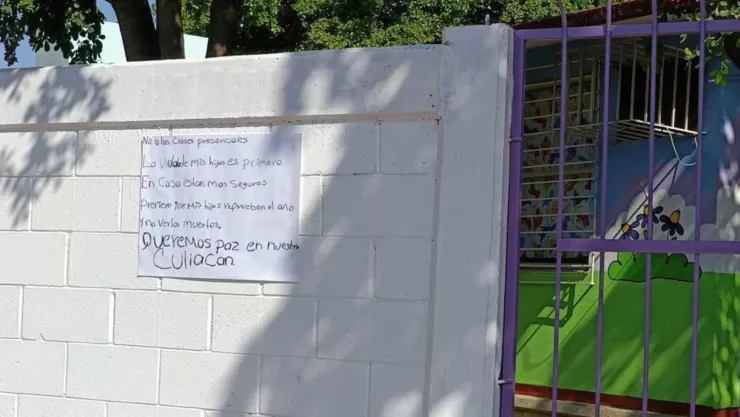 No a las Clases presenciales
La Vida de mis hijos es primero
En Casa estan mas seguros
Prefiero que mis hijos reprueben el año
Y no verlos muertos,
Queremos paz en nuestro
Culiacan